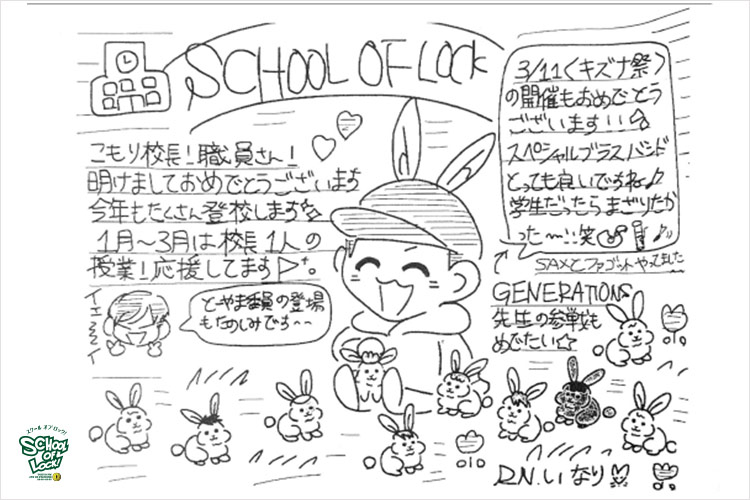 SCHOOL OF LOCK
こもり校長!職員さん!
明けましておめでとうございます
今年もたくさん登校します
1月～3月は校長1人の
授業!応援してます
イエーイ
とーやま委員の登場
もたのしみでち～～
3/11<キズナ祭>
の開催もおめでとう
ございます!!
スペシャルブラスバンド
とっても良いですね♪
学生だったらまざりたか
った～!!笑
SAXとファゴットやってました
GENERATIONS
先生の参戦も
めでたい☆
R.N.いなり
スクール オブ ロック!
SCHOOL
OF
LOCK!